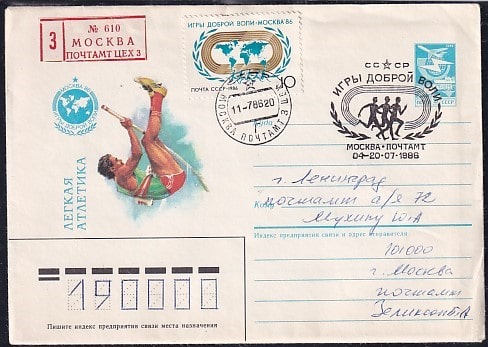 З
№ 610
МОСКВА
ПОЧТАМТ ЦЕХ 3
ИГРЫ ДОБРОЙ ВОЛИ•МОСКВА'86
ПОЧТА СССР•1986
10
11-78620
МОСКВА ПОЧТАМТ
СССР
ИГРЫ ДОБРОЙ ВОЛИ
МОСКВА•ПОЧТАМТ
04-20•07•1986
МОСКВА 86
ИГРЫ ДОБРОЙ ВОЛИ
ЛЕГКАЯ
АТЛЕТИКА
Куда
г. Ленинград
почтамт а/я 72
Кому
Мухину Ю.А
Индекс предприятия связи и адрес отправителя
101000
г. Москва
почтамт
190000
Пишите индекс предприятия связи места назначения